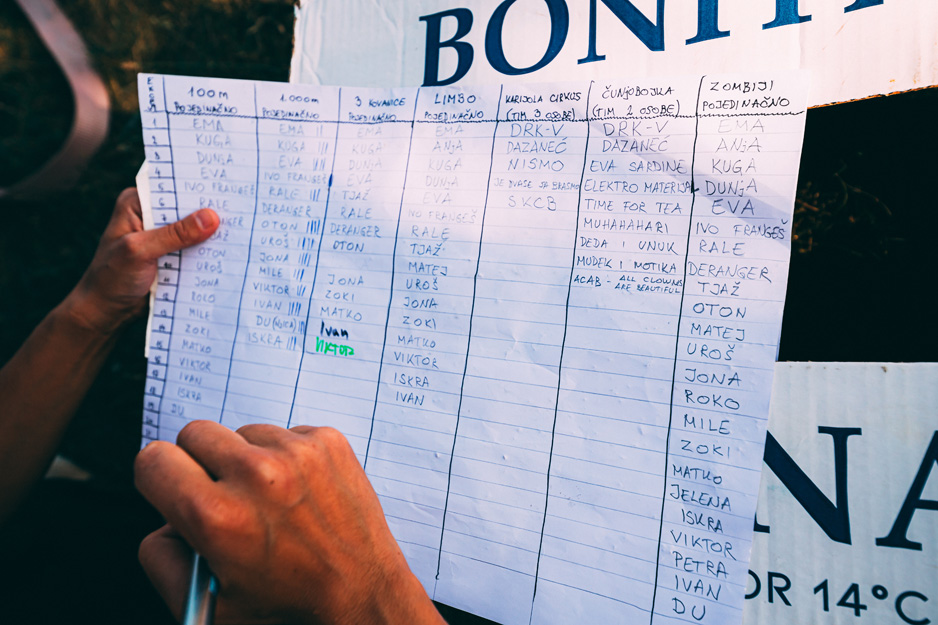 BONIT
EKSA
100m
POJEDINAČNO
1000m
POJEDINAČNO
3 KOVANICE
POJEDINAČNO
LIMBO
POJEDINAČNO
KARIJOLA CIRKUS
(TIM 3 OSOBE)
ČUNJOBOJKA
(TIM 2 OSOBE)
ZOMBIJI
POJEDINAČNO
1
2
3
4
5
6
7
EMA
KUGA
DUNJA
EVA
IVO FRANGEŠ
RALE
ANGER
AŽ
OTON
UROŠ
JONA
ROKO
MILE
ZOKI
MATKO
VIKTOR
IVAN
ISKRA
DU
EMA II
KUGA III
EVA III
IVO FRANGEŠ
RALE III
DERANGER
OTON IIII
UROŠ III
JONA IIII
MILE III
VIKTOR III
IVAN IIII
DU
ISKRA III
EMA
KUGA
DUNJA
EVA
TJAŽ
RALE
DERANGER
OTON
JONA
ZOKI
MATKO
Ivan
VIKTOR
EMA
ANJA
KUGA
DUNJA
EVA
IVO FRANGEŠ
RALE
TJAŽ
MATEJ
UROŠ
JONA
ZOKI
MATKO
VIKTOR
ISKRA
IVAN
DRK-V
DAZANEĆ
NISMO
SKCB
DRK-V
DAZANEĆ
EVA SARDINE
ELEKTRO MATERIJAL
TIME FOR TEA
MUHAHAHARI
DEDA I UNUK
MUDEK I MOTIKA
ACAB - ALL CLOWNS
ARE BEAUTIFUL
EMA
ANJA
KUGA
DUNJA
EVA
IVO FRANGEŠ
RALE
DERANGER
TJAŽ
OTON
MATEJ
UROŠ
JONA
ROKO
MILE
ZOKI
MATKO
JELENA
ISKRA
VIKTOR
PETRA
IVAN
DU
NA
OR 14°C